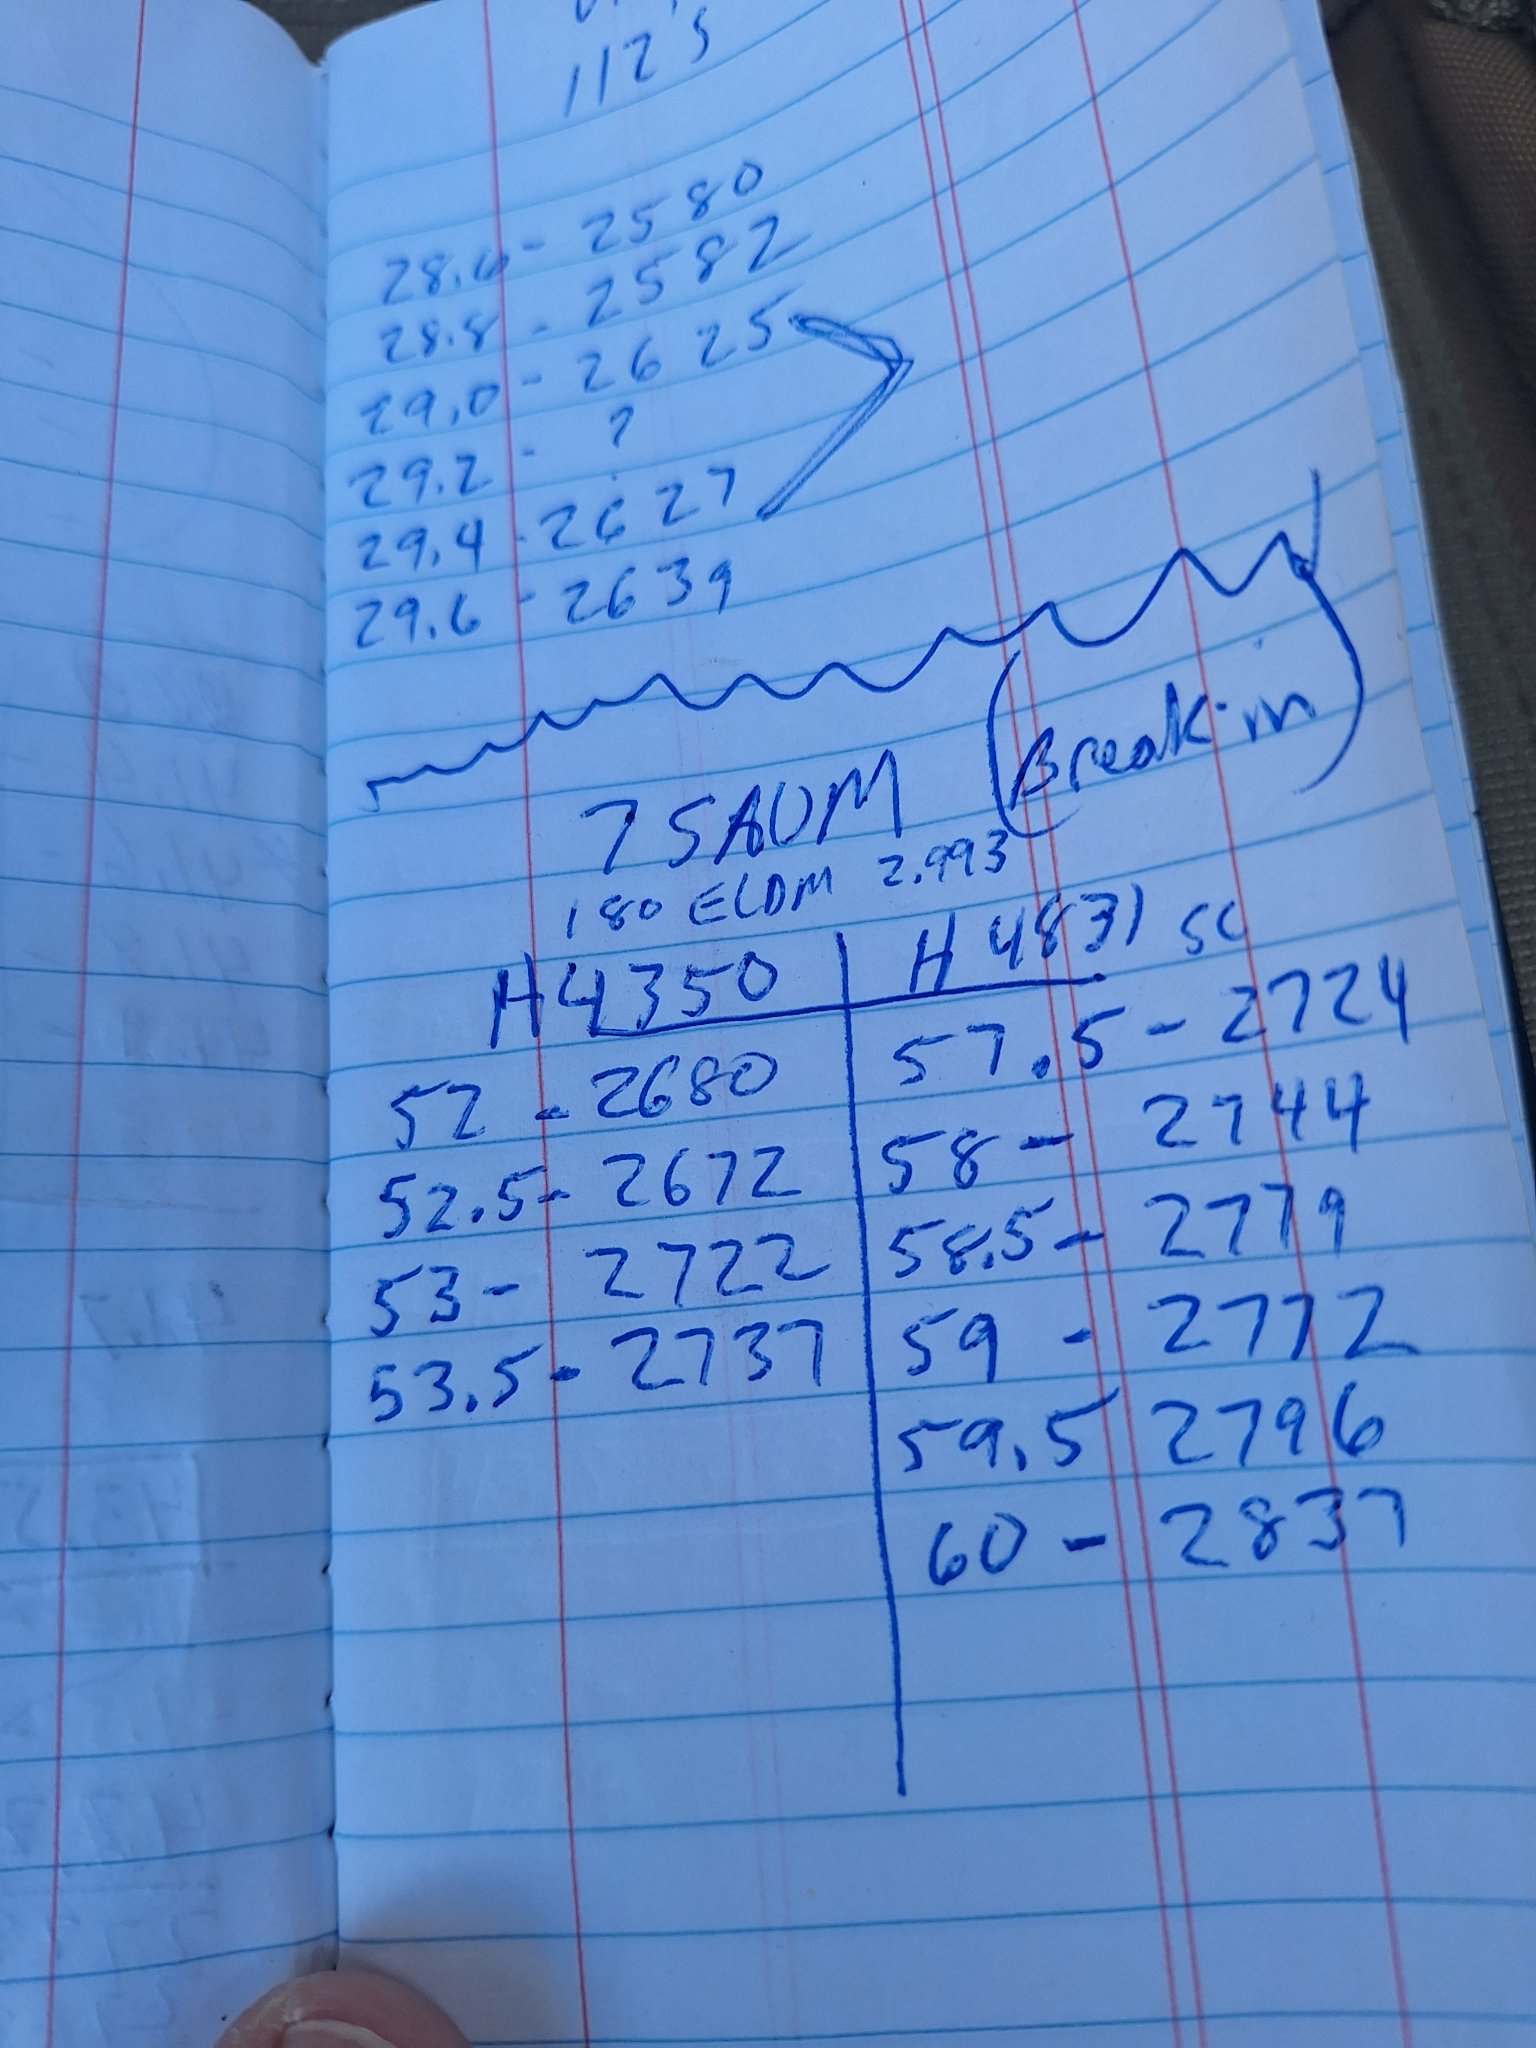 112's
28.6 - 2580
28.8 - 2582
29.0 - 2625
29.2 - ?
29.4 - 2627
29.6 - 2639
7 SAUM (Break-in)
180 ELDM 2.993
H4350 H4831 SC
52 - 2680 57.5 - 2724
52.5 - 2672 58 - 2744
53 - 2722 58.5 - 2779
53.5 - 2737 59 - 2772
59.5 2796
60 - 2837